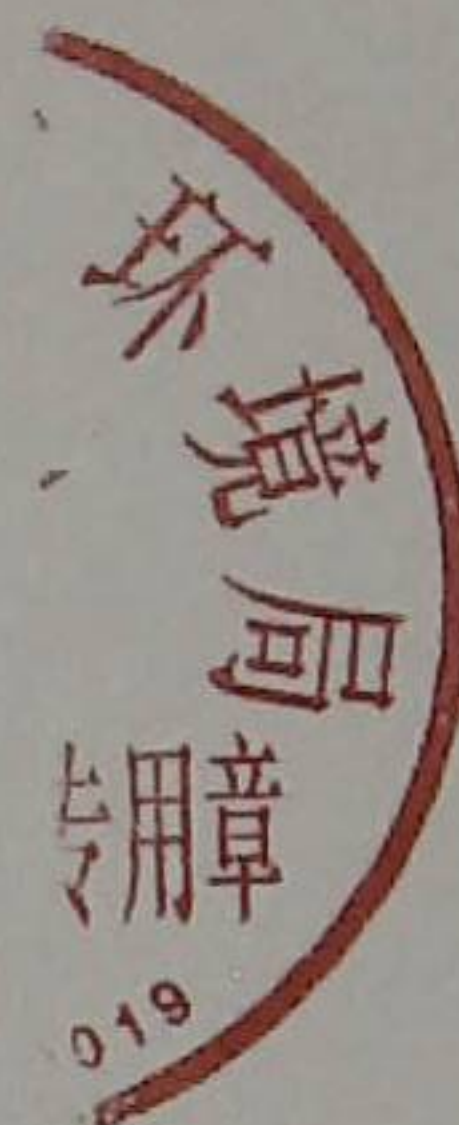 环境局
专用章
019